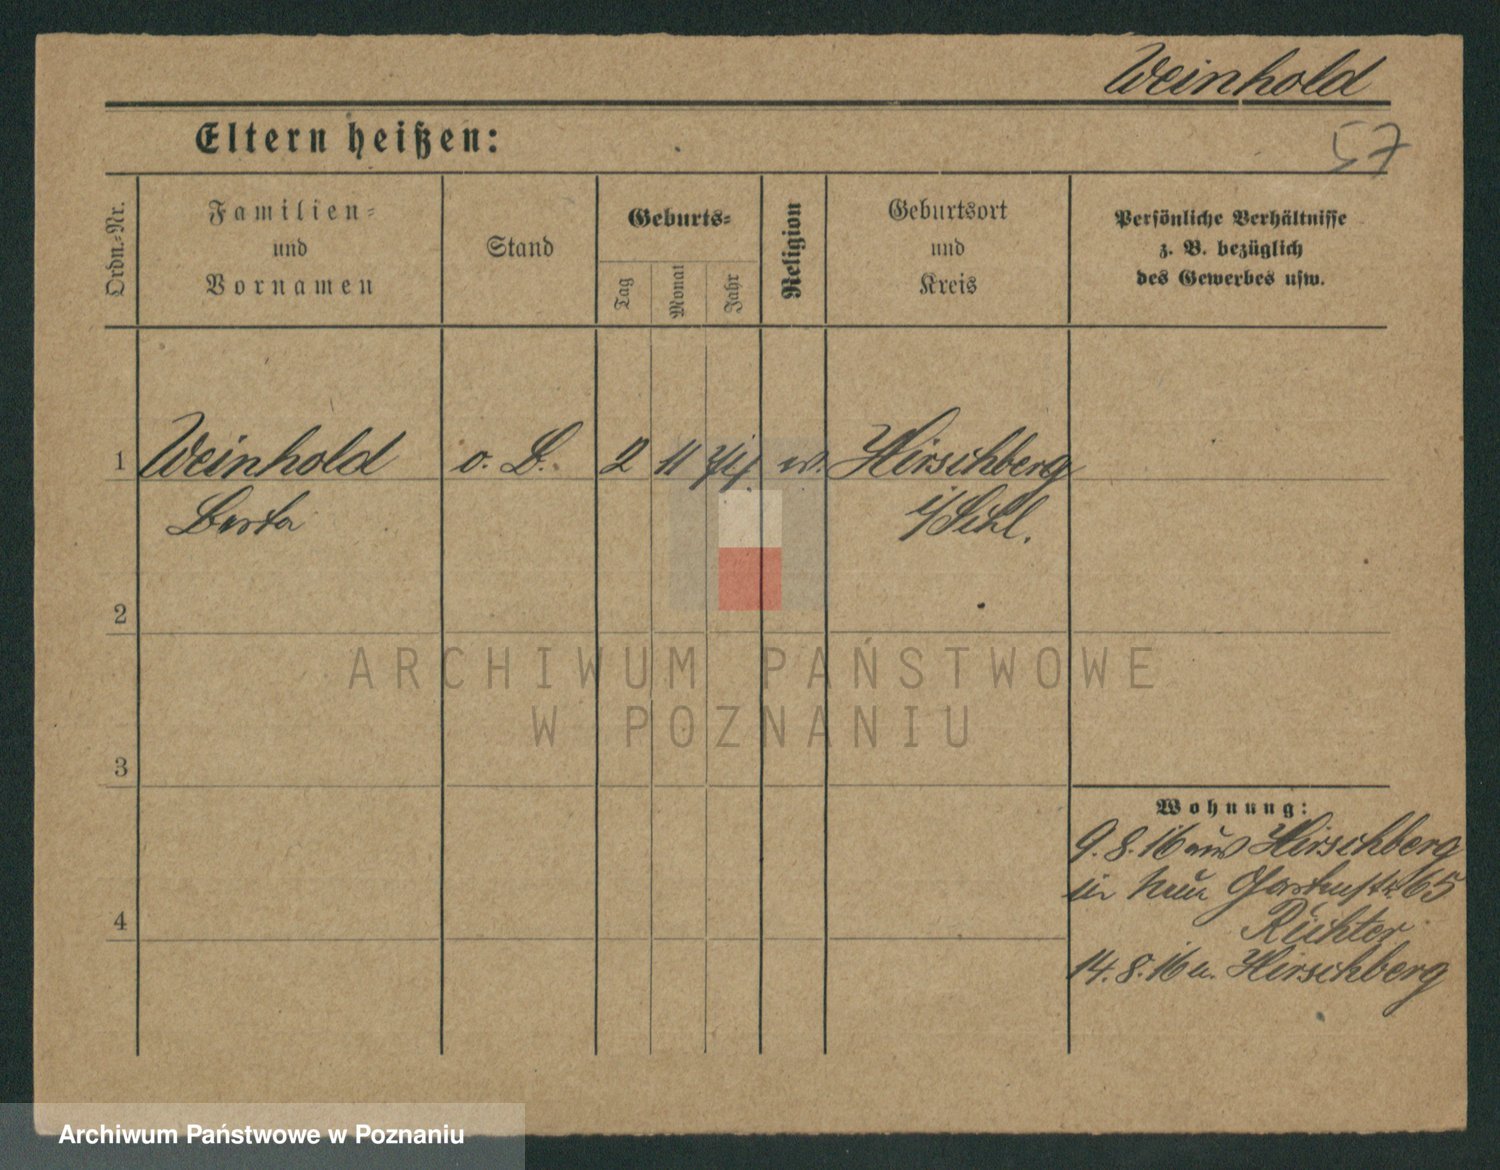 Weinhold
57
Eltern heißen:
Ordn.-Nr.
Familien-
und
Vornamen
Stand
Geburts-
Tag
Monat
Jahr
Religion
Geburtsort
und
Kreis
Persönliche Verhältnisse
z. B. bezüglich
des Gewerbes usw.
1 Weinhold o. B. 2 11 74 ev. Hirschberg
Berta i/Schl.
2
ARCHIWUM PAŃSTWOWE
W POZNANIU
3
Wohnung:
9. 8. 16 aus Hirschberg
in Gartenstr. 65
Richter
4
14. 8. 16 n. Hirschberg
Archiwum Państwowe w Poznaniu